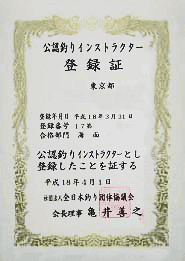 公認釣りインストラクター
登録証
東京都
登録年月日 平成18年3月31日
登録番号 17第
合格部門 海面
公認釣りインストラクターとし
登録したことを証する
平成18年4月1日
社団法人全日本釣り団体協議会
会長理事 亀井善之